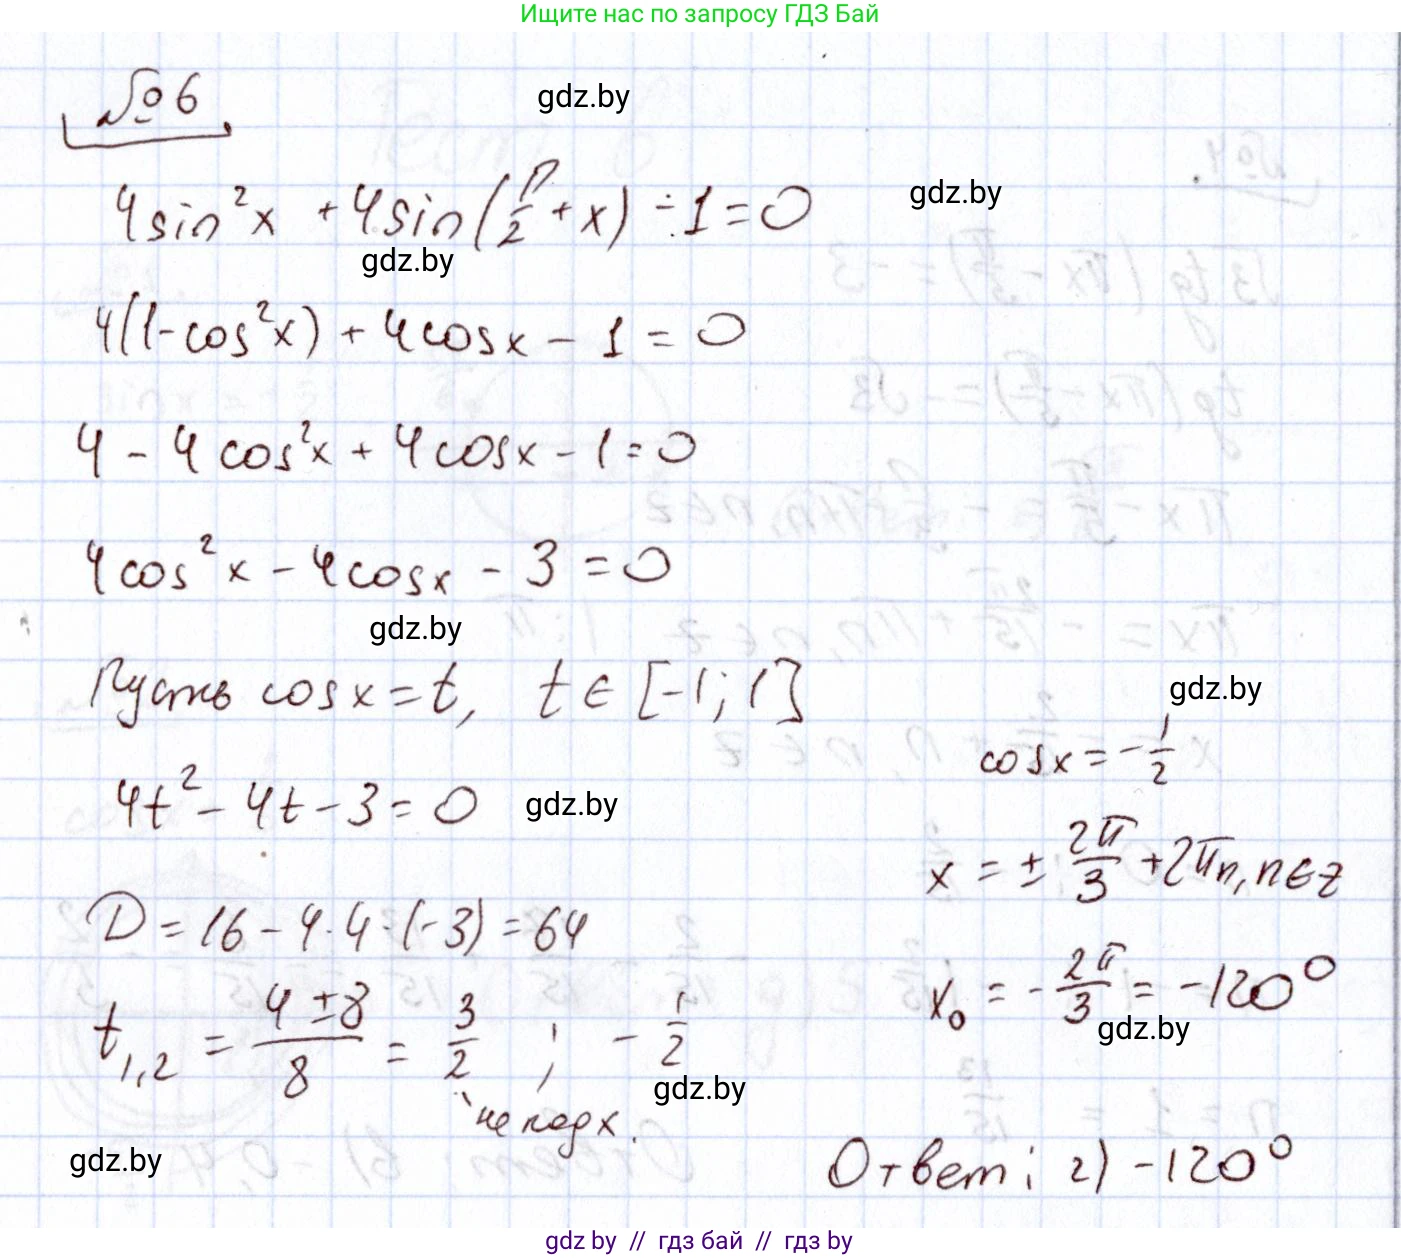 Ищите нас по запросу ГДЗ Бай
№6
gdz.by
4sin²x + 4sin(π/2 + x) - 1 = 0
gdz.by
gdz.by
4(1-cos²x) + 4cosx - 1 = 0
4 - 4cos²x + 4cosx - 1 = 0
4cos²x - 4cosx - 3 = 0
gdz.by
Пусть cosx = t, t ∈ [-1; 1]
gdz.by
4t² - 4t - 3 = 0
gdz.by
D = 16 - 4·4·(-3) = 64
t₁,₂ = (4 ± 8)/8 = 3/2 ; -1/2
не подх.
gdz.by
gdz.by
cosx = -1/2
x = ± 2π/3 + 2πn, n∈z
x₀ = -2π/3 = -120°
gdz.by
Ответ: г) -120°
gdz by // гдз бай // гдз by